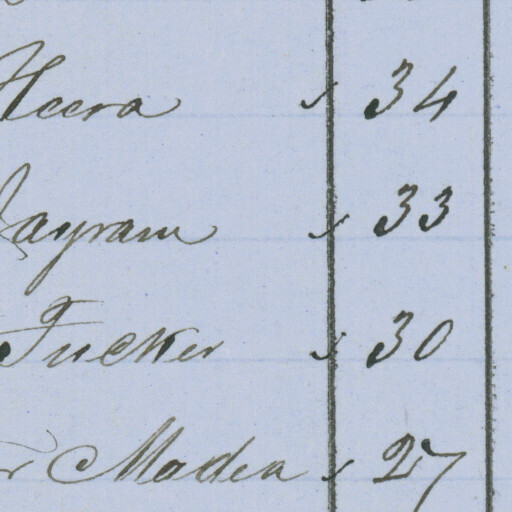 Heera " 34
Jayram " 33
Tucker " 30
r Madea " 27